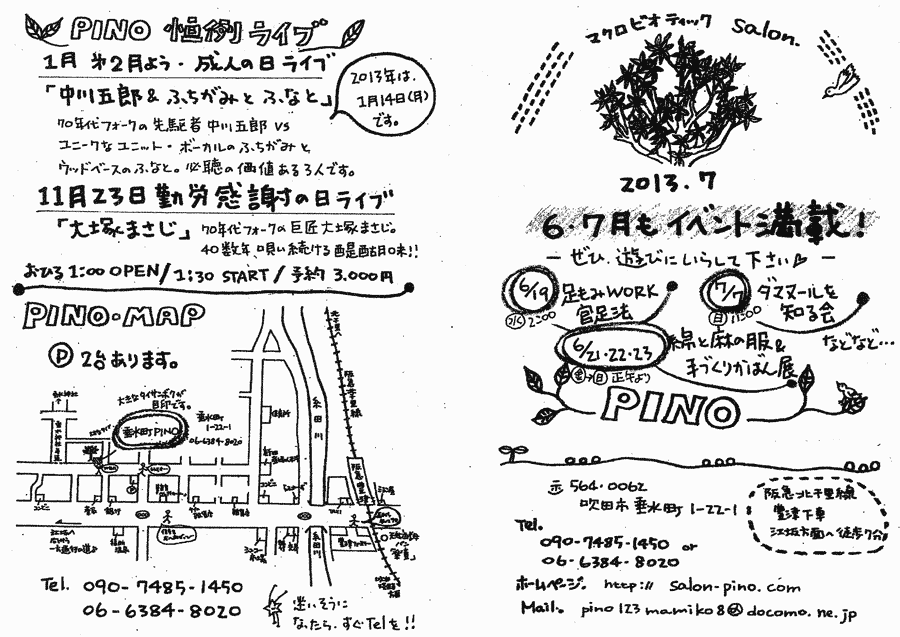 PINO 恒例ライブ
1月 第2月よう・成人の日ライブ
「中川五郎&ふちがみとふなと」
2013年は、
1月14日(月)
です。
70年代フォークの先駆者 中川五郎 VS
ユニークなユニット・ボーカルのふちがみと
ウッドベースのふなと。必聴の価値ある3人です。
11月23日勤労感謝の日ライブ
「大塚まさじ」
70年代フォークの巨匠大塚まさじ。
40数年、唄い続ける醍醐味!!
おひる1:00 OPEN/1:30 START/予約 3.000円
PINO・MAP
P 2台あります。
大きなタイサンボクが
目印です。
垂水町PINO
垂水町
1-22-1
06-6384-8020
糸田川
阪急千里線
阪急豊津
コンビニ
コンビニ
糸田川
Tel. 090-7485-1450
06-6384-8020
迷いそうに
なったら、すぐTelを!!
マクロビオティック Salon.
2013.7
6・7月もイベント満載!
ーぜひ、遊びにいらして下さいー
6/19 足もみWORK
官足法
(水)2:00
7/7 ダマヌールを
知る会
(日)11:00
6/21・22・23 綿と麻の服&
手づくりかばん展
(金)→(日) 正午より
などなど…
PINO
〒564-0062
吹田市垂水町1-22-1
阪急北千里線
豊津下車
江坂方面へ徒歩7分
Tel.
090-7485-1450 or
06-6384-8020
ホームページ。 http:// salon-pino.com
Mail。 pino123mamiko8@docomo.ne.jp